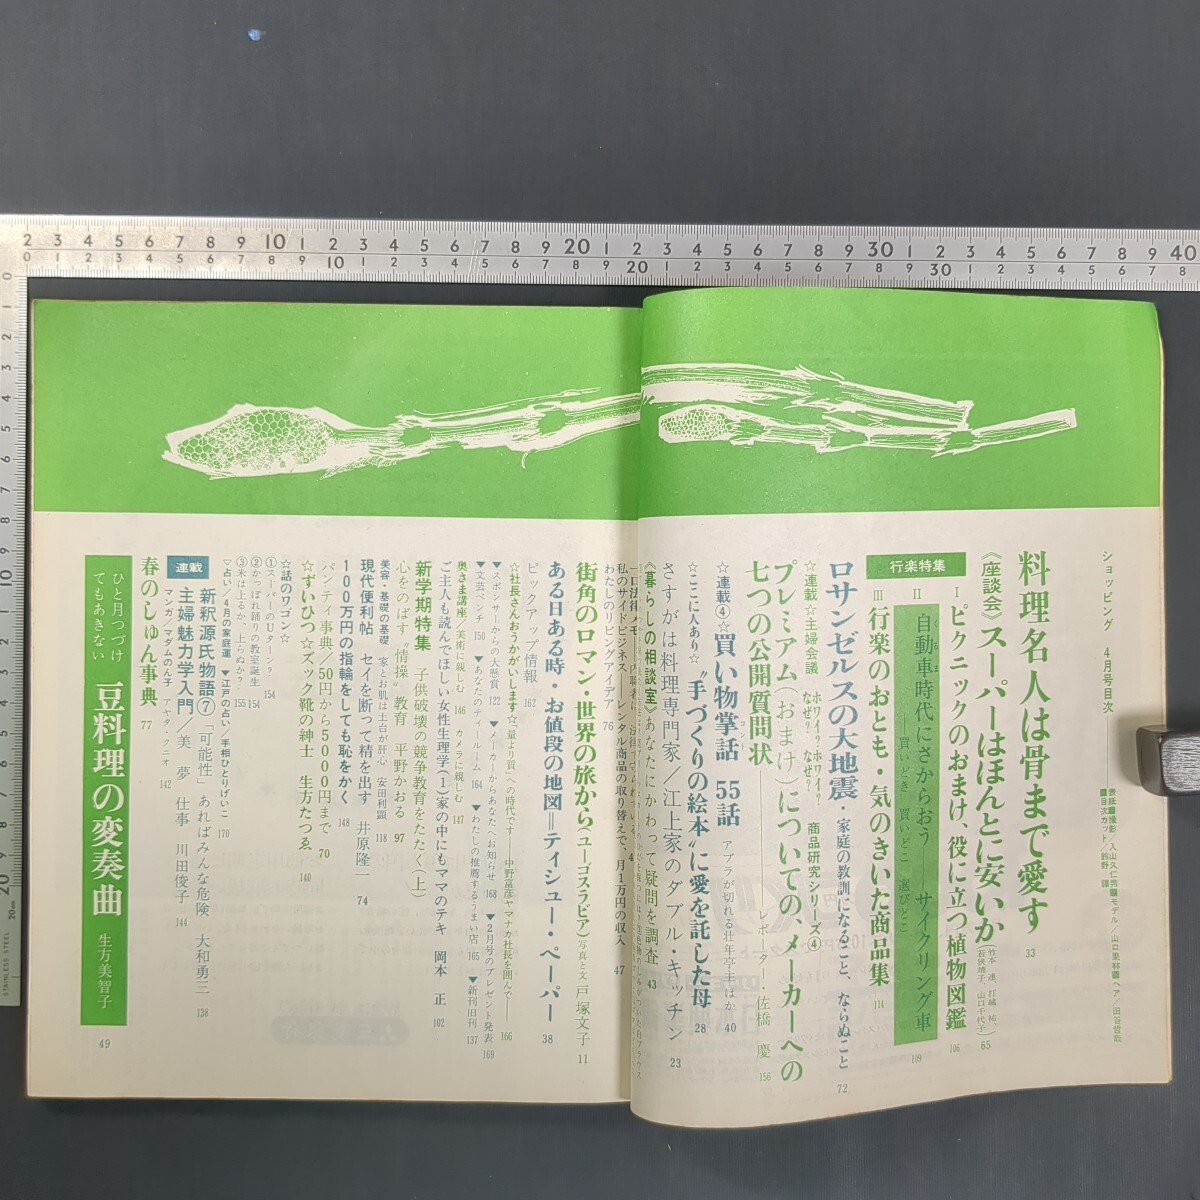 ショッピング 4月号目次
表紙■撮影/入山久仁男■モデル/山口果林■ヘア/田谷哲哉
■目次カット/鈴野 譚
料理名人は骨まで愛す 33
《座談会》スーパーはほんとに安いか 65
行楽特集
Ⅰ ピクニックのおまけ、役に立つ植物図鑑 106
Ⅱ 自動車時代にさからおう——サイクリング車 109
——買いどき 買いどこ 選びどこ
Ⅲ 行楽のおとも・気のきいた商品集 114
ロサンゼルスの大地震・家庭の教訓になること、ならぬこと 72
☆連載☆主婦会議 ホワイ?ホワイ?なぜ?なぜ? 商品研究シリーズ④
プレミアム(おまけ)についての、メーカーへの
七つの公開質問状——レポーター・佐橋 慶 156
☆連載④☆買い物掌話 55話 アブラが切れる壮年亭主ほか 40
☆ここに人あり☆"手づくりの絵本"に愛を託した母 28
さすがは料理専門家/江上家のダブル・キッチン 23
《暮らしの相談室》あなたにかわって疑問を調査 43
私のサイドビジネス——レンタル商品の取り替えで、月1万円の収入 47
わたしのリビングアイデア 76
街角のロマン・世界の旅から(ユーゴスラビア) 写真と文 戸塚文子 11
ある日ある時・お値段の地図=ティシュー・ペーパー 38
ピックアップ情報 162
☆社長さんおうかがいします☆"量より質"への時代です——中野富彦ヤマナカ社長を囲んで—— 166
▼スポンサーからの大懸賞 122 ▼メーカーからあなたへお知らせ 168 ▼2月号のプレゼント発表 169
▼文芸ベンチ 150 ▼あなたのティールーム 164 ▼わたしの推薦するうまい店 165 ▼新刊旧刊 137
奥さま講座/美術に親しむ 146 カメラに親しむ 147
ご主人も読んでほしい女性生理学(1)家の中にもママのテキ 岡本 正 102
新学期特集 子供破壊の競争教育をたたく(上)
心をのばす"情操"教育 平野かおる 97
美容・基礎の基礎 家とお肌は土台が肝心 安田利顕 118
現代便利帖 セイを断って精を出す 井原隆一 74
100万円の指輪をしても恥をかく 148
パンティ事典/50円から5000円まで 70
☆ずいひつ☆ズック靴の紳士 生方たつゑ 140
☆話のワゴン☆
①スーパーのUターン? 154
②かっぽれ踊りの教室誕生 154
③米は上るか、上らぬか? 155
▽占い/4月の家庭運 ▼江戸の占い/手相ひとりげいこ 170
連載
新釈源氏物語⑦「可能性」あればみんな危険 大和勇三 138
主婦魅力学入門/美 夢 仕事 川田俊子 144
マンガ/マダムのん子 アヤタ・クニオ 142
春のしゅん事典 77
ひと月つづけてもあきない 豆料理の変奏曲 生方美智子 49
STAINLESS STEEL